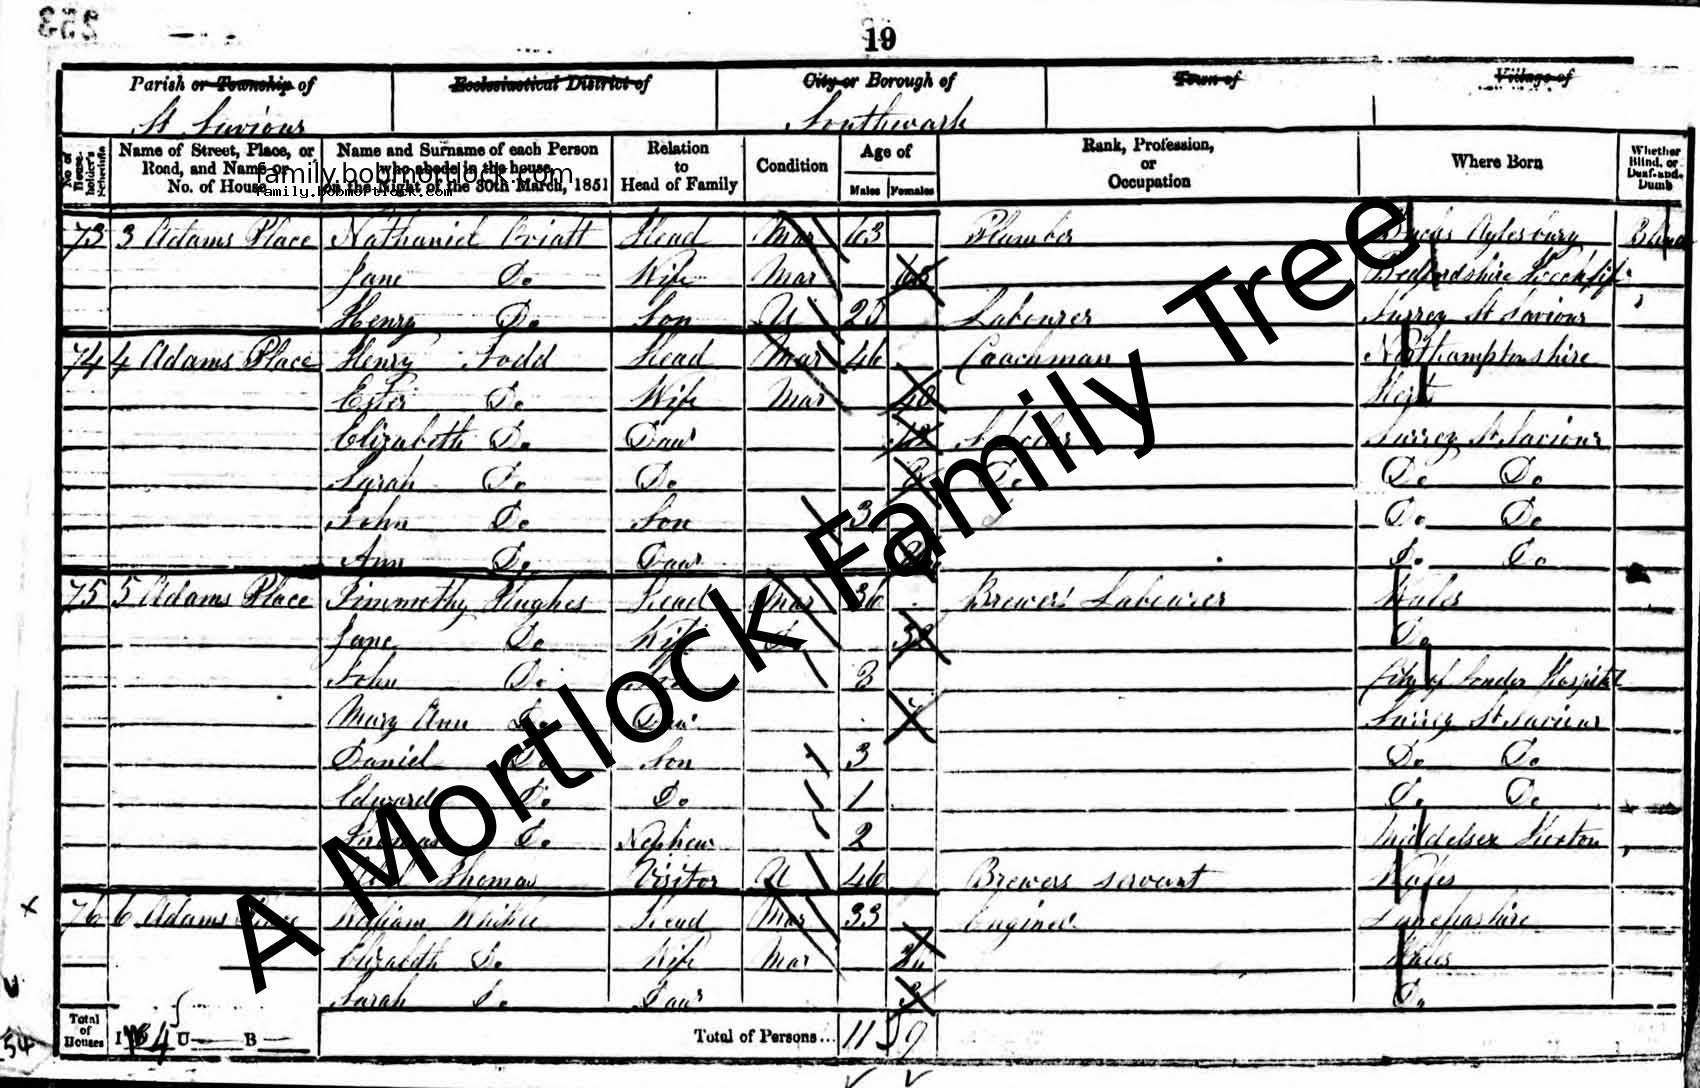 253
19
Parish or Township of Ecclesiastical District of City or Borough of Town of Village of
St Saviour Southwark
No. of Householder's Schedule Name of Street, Place, or Road, and Name or No. of House Name and Surname of each Person who abode in the house, on the Night of the 30th March, 1851 Relation to Head of Family Condition Age of Males Females Rank, Profession, or Occupation Where Born Whether Blind, or Deaf-and-Dumb
family.bobmortlock.com
family.bobmortlock.com
73 3 Adams Place Nathaniel Head Mar 63 Plumber Bucks Aylesbury Blind
Jane Do Wife Mar Bedfordshire
Henry Do Son U Labourer Surrey St Saviour
74 4 Adams Place Henry Todd Head Mar 46 Coachman Northamptonshire
Ester Do Wife Mar
Elizabeth Do Daur Surrey St Saviour
Sarah Do Do Do Do Do
John Do Son 3 Do Do
Ann Do Daur Do Do
75 5 Adams Place Timmothy Hughes Head Mar 36 Brewers Labourer Wales
Jane Do Wife Do
John Do City of London Hospital
Mary Ann Do Daur Surrey St Saviour
Daniel Do Son 3 Do Do
Edward Do Do 1 Do Do
Thomas Do Nephew 2 Middelsex Hoxton
Thomas Visitor U 46 Brewers servant Wales
76 6 Adams Place William Head Mar 33 Engineer
Elizabeth Do Wife Mar Wales
Sarah Do Daur Do
Total of Houses I 4 U B Total of Persons... 11 9
54
A Mortlock Family Tree